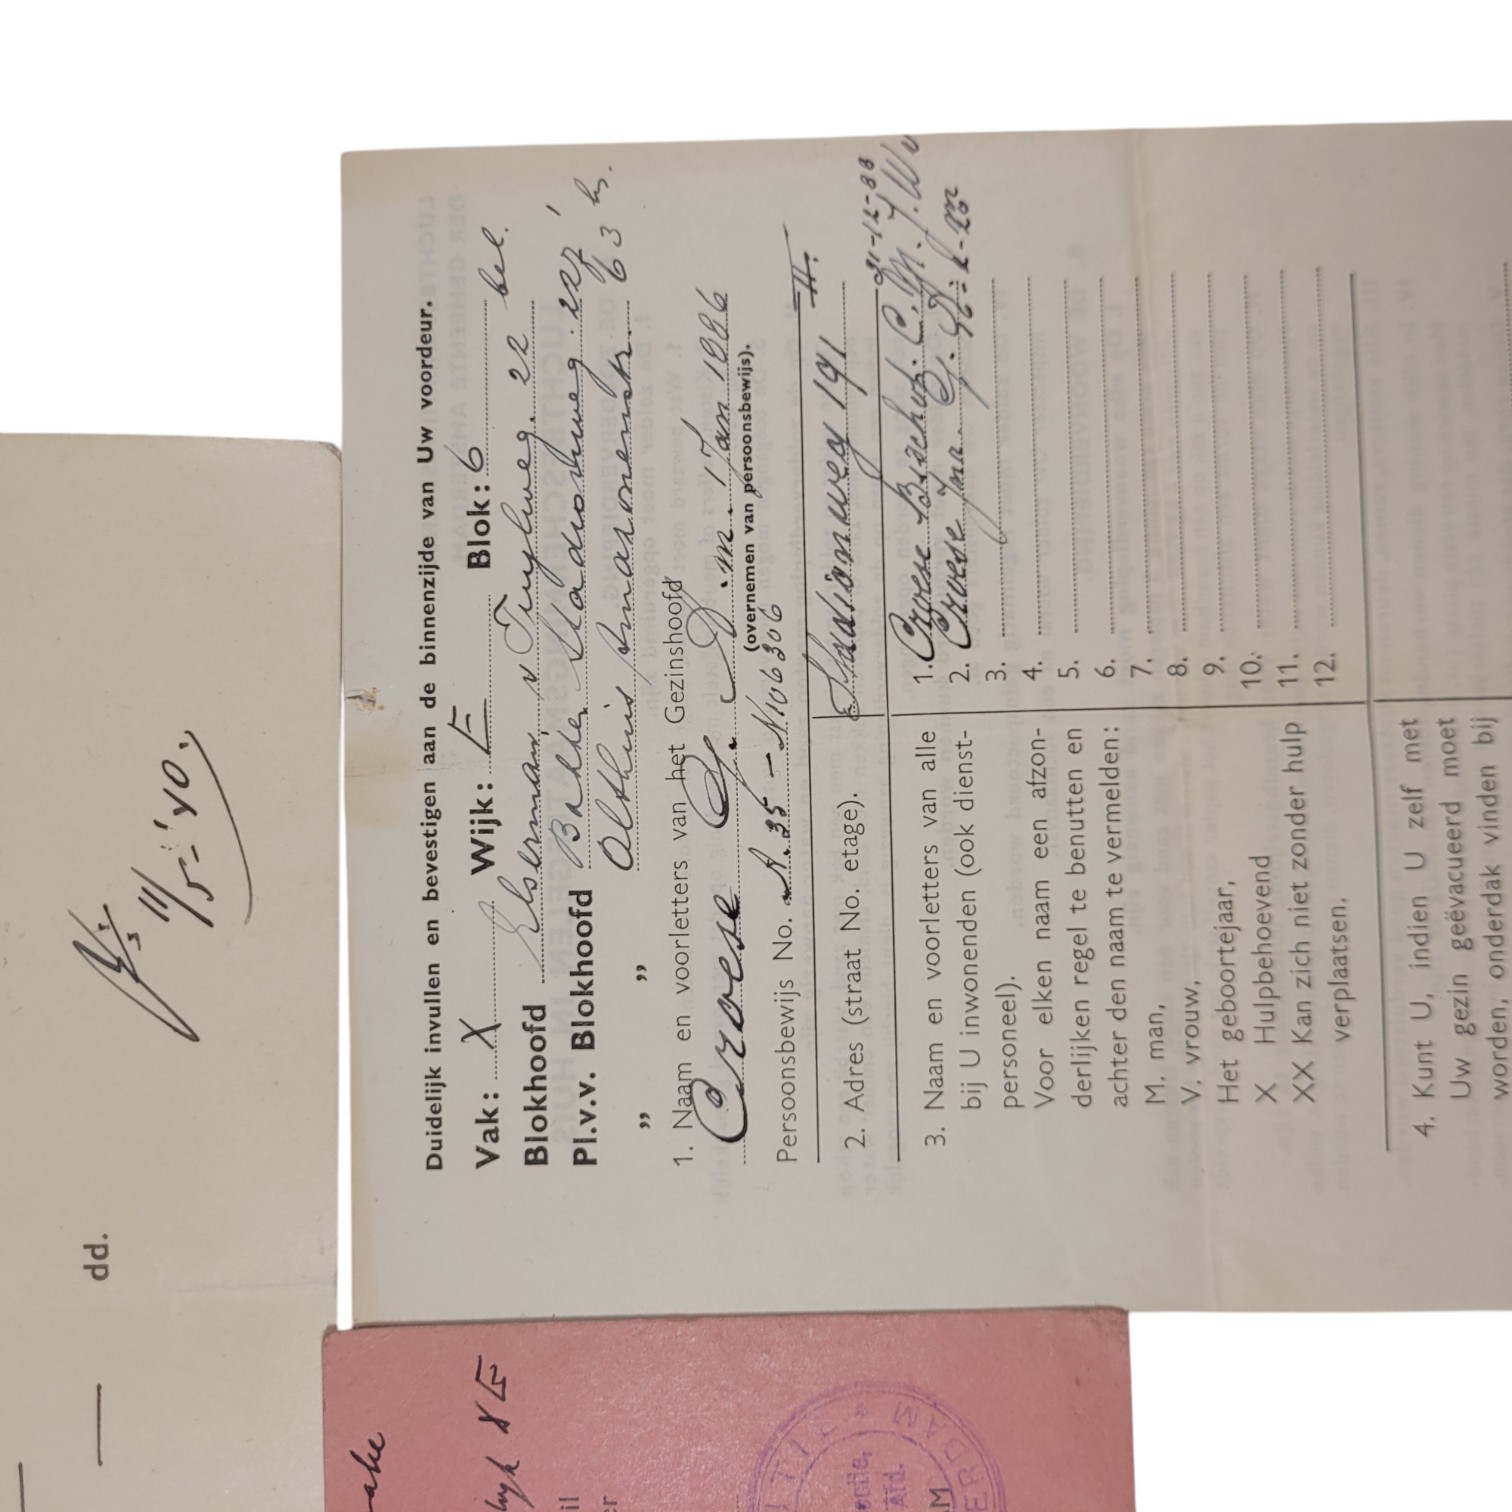 dd.
11/5-'40.
Duidelijk invullen en bevestigen aan de binnenzijde van Uw voordeur.
Vak: X Wijk: E Blok: 6
Blokhoofd Elserman v Tuyllweg. 22 bel.
Pl.v.v. Blokhoofd Bakker Stadionweg 227'
„ „ Althuis Amazonenstr. 63 hs.
1. Naam en voorletters van het Gezinshoofd
Croese G. D. m. 1 Jan 1886
(overnemen van persoonsbewijs).
Persoonsbewijs No. A.35 – N106306
2. Adres (straat No. etage). Stadionweg 191 II.
3. Naam en voorletters van alle
bij U inwonenden (ook dienst-
personeel).
Voor elken naam een afzon-
derlijken regel te benutten en
achter den naam te vermelden:
M. man,
V. vrouw,
Het geboortejaar,
X Hulpbehoevend
XX Kan zich niet zonder hulp
verplaatsen.
1. Croese C. M. J.
2. Croese Ina
3.
4.
5.
6.
7.
8.
9.
10.
11.
12.
4. Kunt U, indien U zelf met
Uw gezin geëvacueerd moet
worden, onderdak vinden bij
8 E
AM
ERDAM